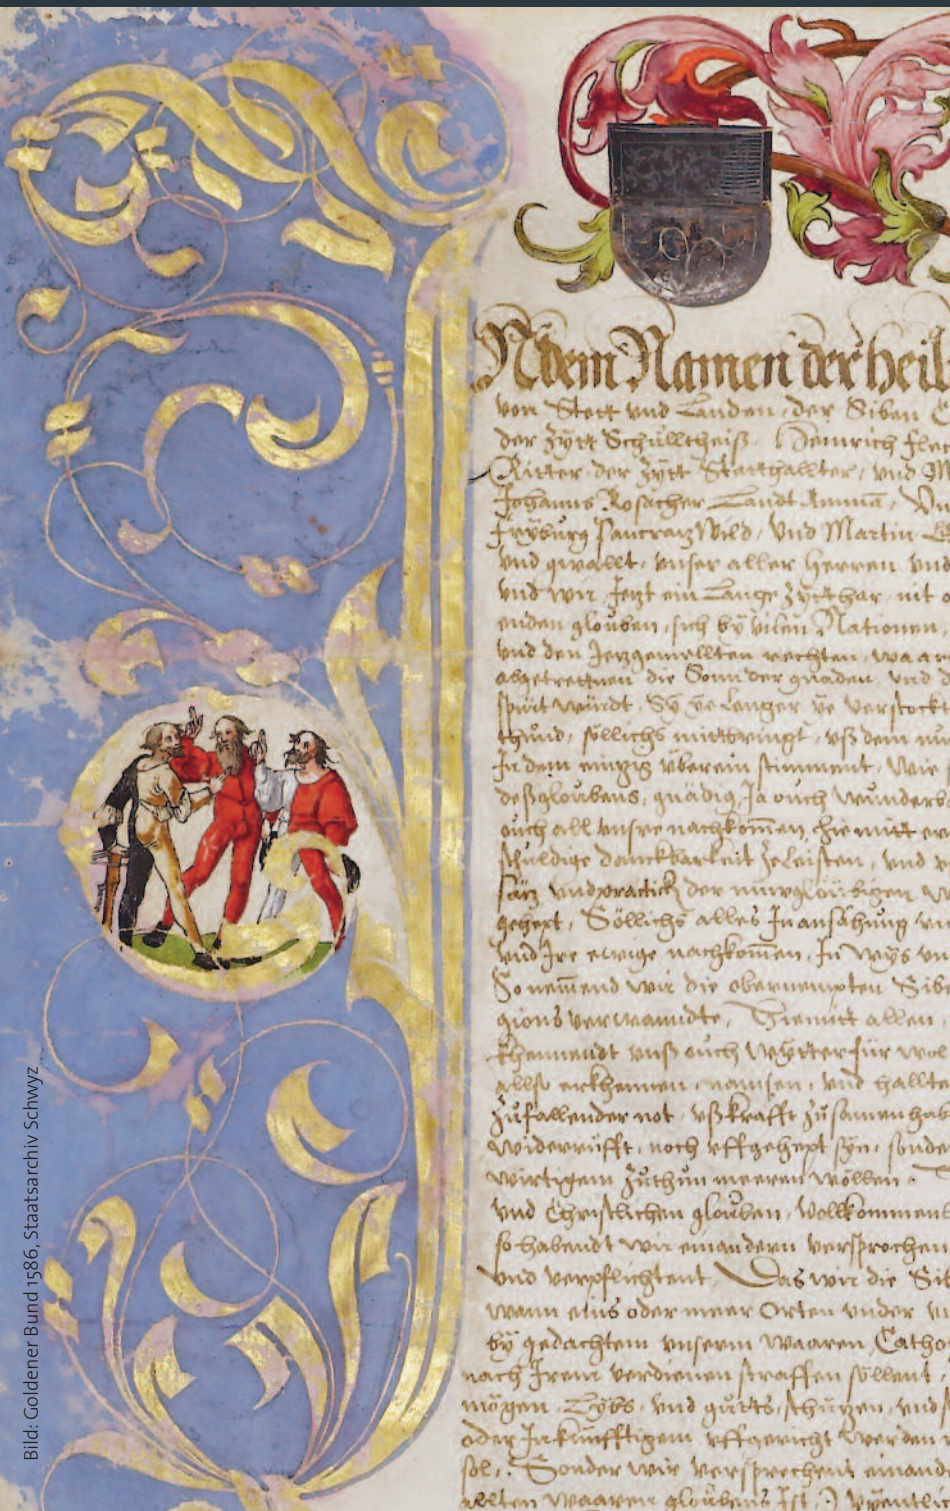 N dem Namen der heil
von Stett vnd Landen, der Siben
der Zytt Schulltheiß. Heinrich Flec
Ritter, der Zytt Statthallter, vnd M
Johanns Rosacher Landt Amma,
Fryburg Pancratz Wild, Vnd Martin
vnd gwallt, vnser aller Herren vnd
vnd wir, Jetzt ein Lange Zytt har, mit
glouben, sich by vilen Nationen
vnd den Jetzgemellten rechten, waare
abgetrettnen die Sonn der gnaden, vnd d
spürt würdt. Sy ye Lenger ye verstockt
söllichs mittbringt, vß dem
In dem einzig vberein stimment, Wie
deß gloubens, gnädig, Ja ouch Wunderb
ouch all vnsre nachkommen, hiemitt
schuldige danckbarkeit Zeleisten, vnd
vnd practick der
gehept, Söllichs alles In ansähung
vnd Ire ewige nachkommen, In Wys vn
So nemmend wir die obernempten Sibe
gions verwanndte, Hiemitt allen
khennendt vnß ouch Wytter für
allso erkhennen, namsen, vnd hallte
Zufallender not, vß krafft Zusamen hab
widerrüfft, noch vffgehept syn, sonde
würtigem Zuthun meeren wöllen.
vnd Christlichen glouben, Vollkommen
so habendt wir einandern versprochen
vnd verpflichtent, Das wir die Sib
wann eins oder meer Orten vnder
by gedachtem vnserm Waaren, Catho
nach Irem verdienen straffen söllent,
mögen Lybs, vnd gutts, schützen, vnd
oder In künfftigem vffgericht werden
sol. Sonder wir versprechent einand
allten Waaren gloubens Ist
Bild: Goldener Bund 1586, Staatsarchiv Schwyz